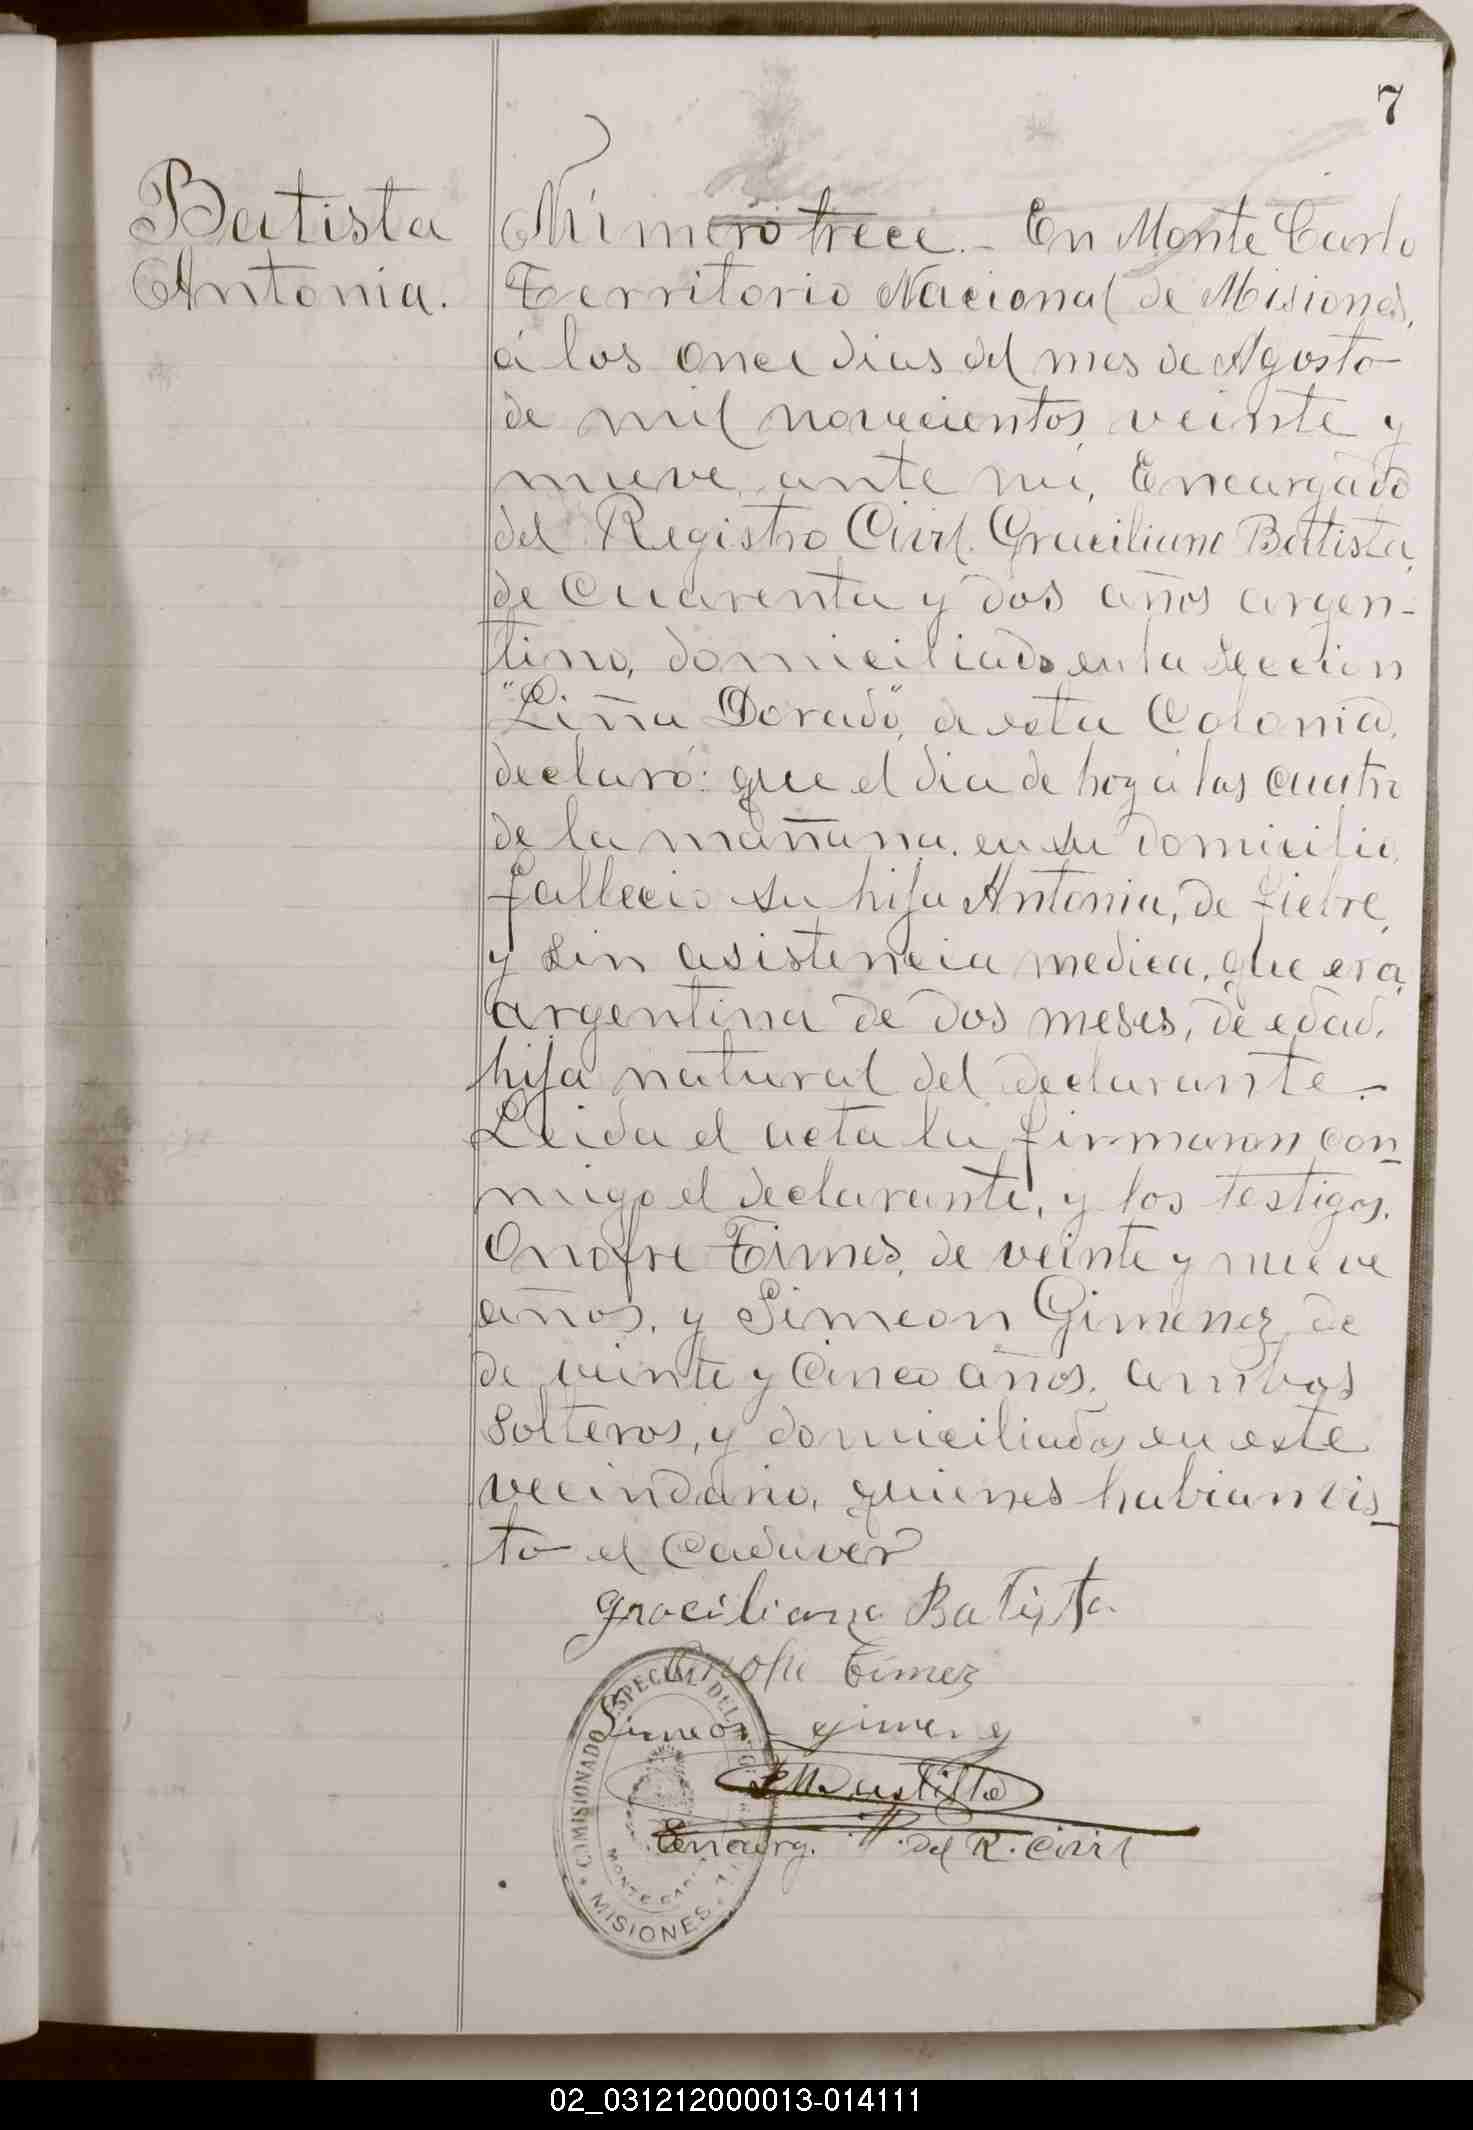 7
Batista
Antonia.
Número trece.- En Monte Carlo
Territorio Nacional de Misiones,
á los once dias del mes de Agosto
de mil novecientos veinte y
nueve, ante mi, Encargado
del Registro Civil. Graciliano Batista,
de cuarenta y dos años argen-
tino, domiciliado en la seccion
"Liña Dorado", de esta Colonia,
declaró: que el dia de hoy á las cuatro
de la mañana. en su domicilio,
fallecio su hija Antonia, de fiebre,
y sin asistencia medica, que era
argentina de dos meses, de edad,
hija natural del declarante.-
Leida el acta la firmaron con-
migo el declarante, y los testigos.
Onofre Times, de veinte y nueve
años, y Simeon Gimenez de
de veinte y cinco años, ambos
solteros, y domiciliados en este
vecindario, quienes habian vis-
to el cadaver
Graciliano Batista
Onofre Timez
Simeon gimenez
Encarg. del R. Civil
COMISIONADO ESPECIAL DEL
MONTE CARLO
MISIONES
02_031212000013-014111